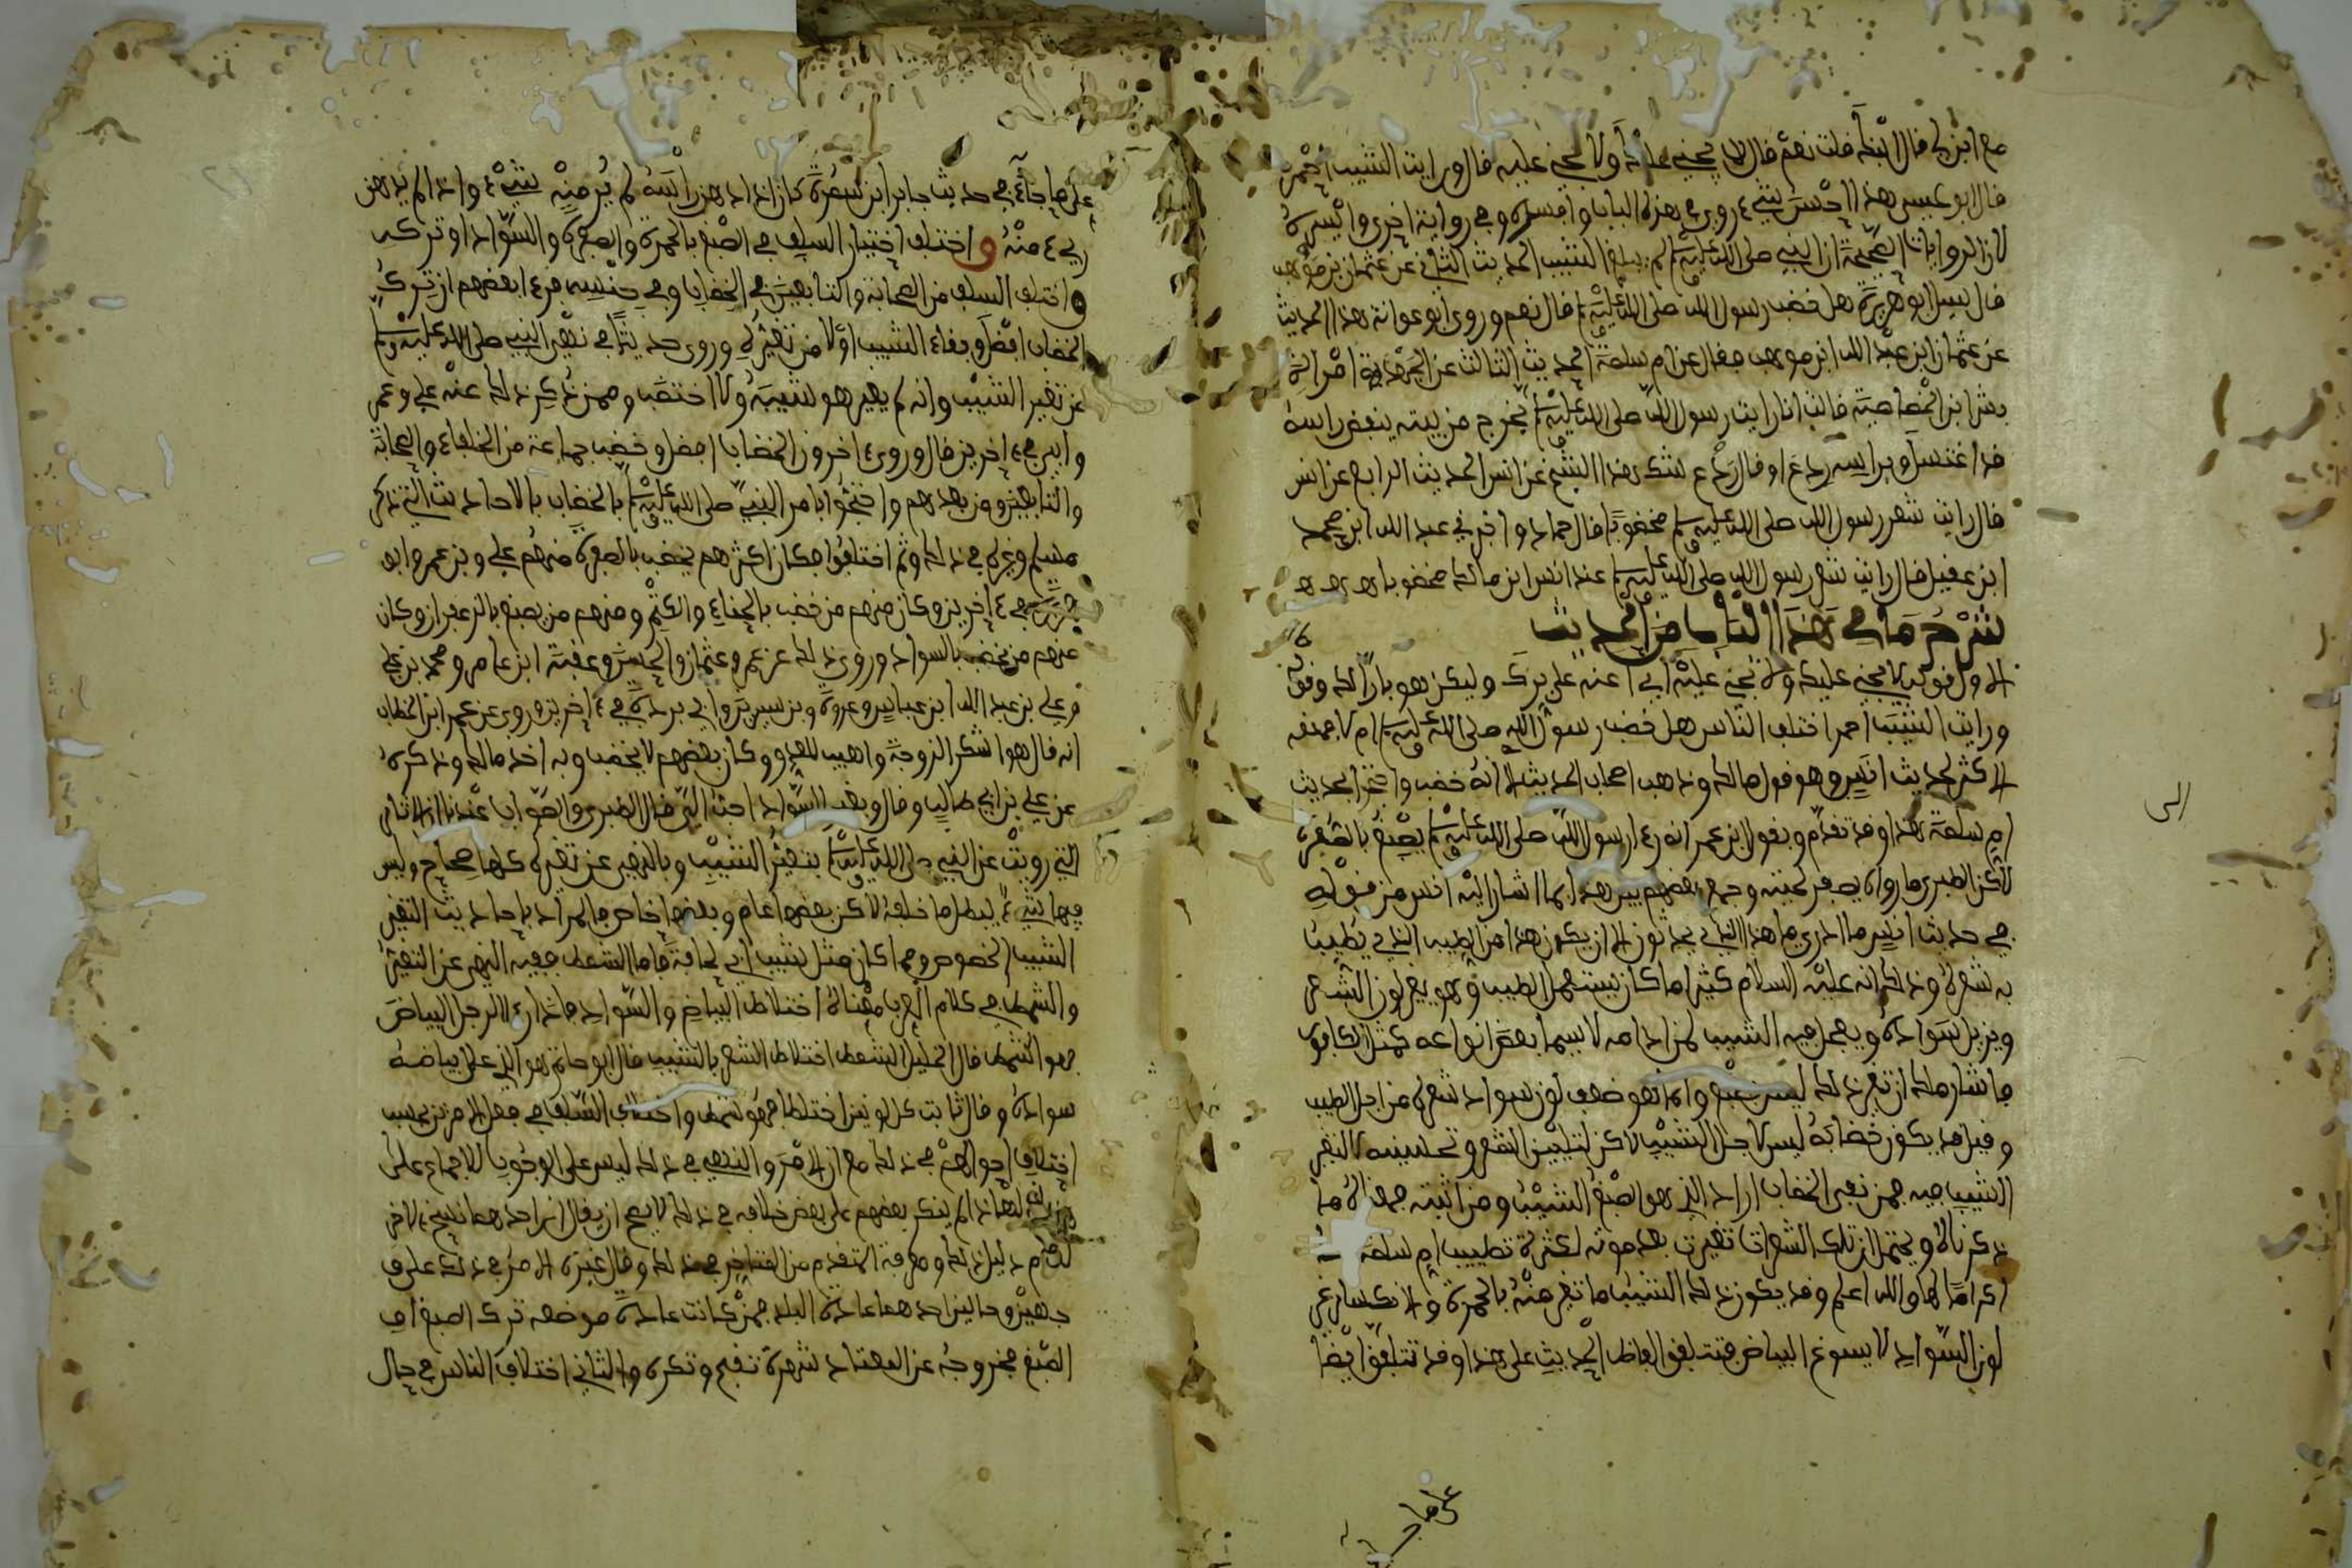 مع ابن لي فقال ابنك قلت نعم قال لا يجني عليك ولا تجني عليه قال ورايت الشيب احمر
قال ابو عيسى هذا احسن شيء روي في هذا الباب وافسره وفي رواية اخرى وايسره
لان الروايات الصحيحة ان النبي صلى الله عليه وسلم لم يبلغ الشيب الحديث الثاني عن عثمان بن موهب
قال سيل ابو هريرة هل خضب رسول الله صلى الله عليه وسلم قال نعم وروى ابو عوانة هذا الحديث
عن عثمان ابن عبد الله ابن موهب فقال عن ام سلمة الحديث الثالث عن الجهدمة امراة
بشر ابن الخصاصية قالت انا رايت رسول الله صلى الله عليه وسلم يخرج من بيته ينفض راسه
قد اغتسل وبراسه ردع او قال ردغ شك هذا الشيخ عن انس الحديث الرابع عن انس
قال رايت شعر رسول الله صلى الله عليه وسلم مخضوبا قال حماد واخبرني عبد الله ابن محمد
ابن عقيل قال رايت شعر رسول الله صلى الله عليه وسلم عند انس ابن مالك مخضوبا ه ه ه
شرح ما في هذا الباب من الحديث
الاول قوله لا يجني عليك ولا تجني عليه اي ا عنه على برك وليكن هو بارا لك وقوله
ورايت الشيب احمر اختلف الناس هل خضب رسول الله صلى الله عليه وسلم ام لا فمنعه
الاكثر لحديث انس وهو قول مالك وذهب اصحاب الحديث الا انه خضب واحتج الحديث
ام سلمة هذا وقد تقدم وبقول ابن عمر انه رءا رسول الله صلى الله عليه وسلم يصبغ بالصفرة
لاكن الطبري ما رواه يصفر لحيته وجمع بعضهم بين هذا بما اشار اليه انس من قوله
في حديث انس ما ادري ما هذا الذي يحدثون الا ان يكون هذا من الطيب الذي يطيب
به شعره وذلك انه عليه السلام كثيرا ما كان يستعمل الطيب وهو يغير لون الشعر
ويزيل سواده ويعجل فيه الشيب لمن ادامه لا سيما بعض انواعه كمثل الكافور
فاشار ملك ان تغير ذلك ليس بصبغ وانما هو ضعف لون سواد شعره من اجل الطيب
وقيل قد يكون خضابه ليس لاجل الشيب لاكن لتليين الشعر وتحسينه لا لتغير
الشيب فيه فمن نفى الخضاب اراد الذي هو الصبغ الشيب ومن اثبته فمعناه ما
ذكرناه ويحتمل ان تلك الشعرات تغيرت بعد موته لكثرة تطييب ام سلمة
اكراما لها والله اعلم وقد يكون ذلك الشيب ما تغير منه بالحمرة والانكسار عن
لون السواد لا بسوغ البياض فتتلفق الفاظ الحديث على هذا وقد تتلفق ايضا
على ما جاء في حديث جابر ابن سمرة كان اذا ادهن راسه لم ير منه شيء واذا لم يدهن
ريء منه واختلف اختيار السلف في الصبغ بالحمرة والصفرة والسواد او تركه
واختلف السلف من الصحابة والتابعين في الخضاب وفي جنسه فرءا بعضهم ان ترك
الخضاب افضل وبقاء الشيب اولا من تغيره وروى حديثا في نهي النبي صلى الله عليه وسلم
عن تغير الشيب وانه لم يغير هو شيبه ولا اختضب وممن ذكر ذلك عنه علي وعمر
وابي في ءاخرين قال وروى ءاخرون الخضاب افضل وخضب جماعة من الخلفاء والصحابة
والتابعين ومن بعدهم واحتجوا بامر النبي صلى الله عليه وسلم بالخضاب بالاحاديث التي ذكر
مسلم وغيره في ذلك وثم اختلفوا فكان اكثرهم يخضب بالصفرة منهم علي وبن عمر وابو
هريرة في ءاخرين وكان منهم من خضب بالحناء والكتم ومنهم من يصبغ بالزعفران وكان
منهم من يخضب بالسواد وروي ذلك عن عمر وعثمان والحسن وعقبة ابن عامر ومحمد بن علي
وعلي بن عبد الله ابن عباس وعروة وبن سيرين وابي بردة في ءاخرين وروي عن عمر ابن الخطاب
انه قال هو اشكر الزوجة واهيب للعدو وكان بعضهم لا يخضب وبه اخذ مالك وذكره
عن علي بن ابي طالب وقال وبغير السواد احب الي قال الطبري والصواب عندنا ان الاثار
التي رويت عن النبي صلى الله عليه وسلم بتغير الشيب وبالنهي عن تغيره كلها صحاح وليس
فيها شيء يبطل ما خلفه لاكن بعضها عام وبعضها خاص فالمراد باحاديث التغير
الشيب الخصوص وهما كان مثل شيب ابي قحافة فاما الشمط ففيه النهي عن التغير
والشمط في كلام العرب معناه اختلاط البياض والسواد فاذا رءا الرجل البياض
فهو اشمط قال الخليل الشمط اختلاط الشعر بالشيب قال ابو حاتم هو الذي على بياضه
سواده وقال ثابت كل لونين اختلطا فهو شمط واختلاف السلف في فعل الامرين بحسب
اختلاف احوالهم في ذلك مع ان الامر والنهي في ذلك ليس على الوجوب للاجماع على
هذا لم ينكر بعضهم على بعض خلافه في ذلك ولا يصح ان يقال ان احدهما نسخ الاخر
لعدم دليل ذلك ومعرفة المتقدم من المتاخر في هذا وقال غيره الامر في ذلك على
جهين وحالين احدهما عادة البلد فمن كانت عادة موضعه ترك الصبغ او
الصبغ فخروجه عن المعتاد شهرة تقبح وتكره والثاني اختلاف الناس في حال
الى